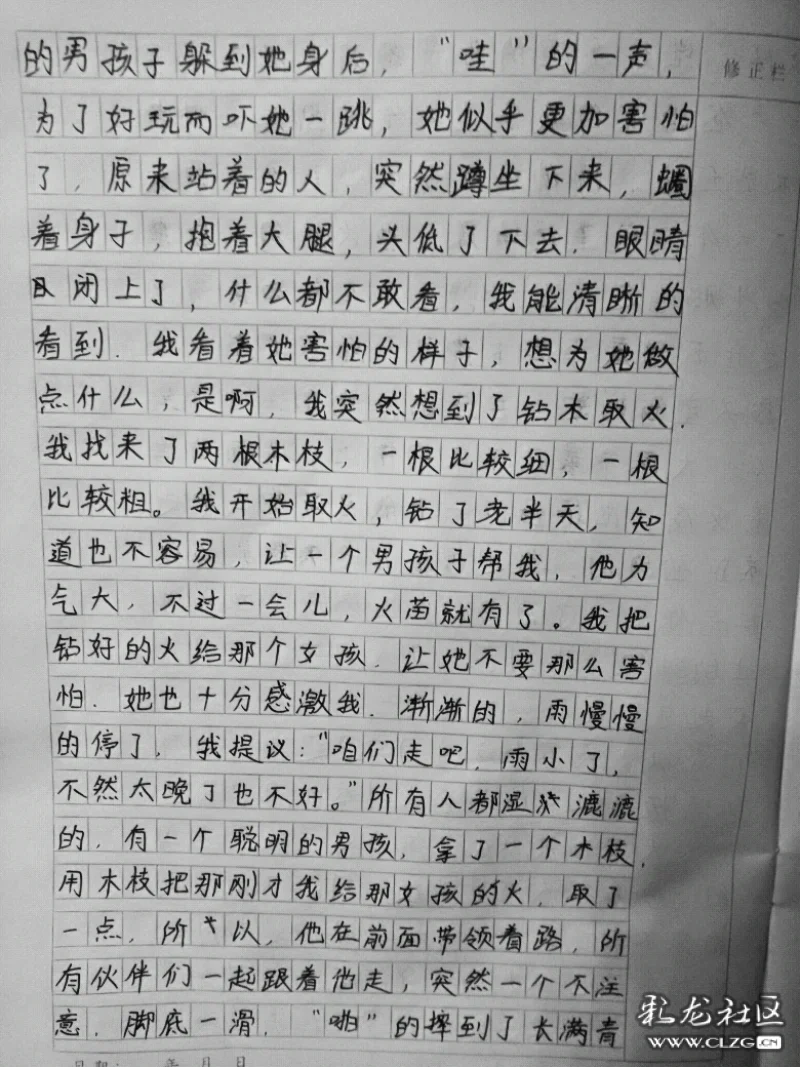 的男孩子躲到她身后，“哇”的一声，
修正栏
为了好玩而吓她一跳，她似乎更加害怕
了，原来站着的人，突然蹲坐下来，蜷
着身子，抱着大腿，头低了下去．眼睛
闭上了，什么都不敢看，我能清晰的
看到．我看着她害怕的样子，想为她做
点什么，是啊，我突然想到了钻木取火．
我找来了两根木枝，一根比较细，一根
比较粗。我开始取火，钻了老半天，知
道也不容易，让一个男孩子帮我，他力
气大，不过一会儿，火苗就有了。我把
钻好的火给那个女孩．让她不要那么害
怕．她也十分感激我．渐渐的，雨慢慢
的停了，我提议：“咱们走吧，雨小了，
不然太晚了也不好。”所有人都湿漉漉
的，有一个聪明的男孩，拿了一个木枝，
用木枝把那刚才我给那女孩的火，取了
一点，所以，他在前面带领着路，所
有伙伴们一起跟着他走，突然一个不注
意．脚底一滑．“啪”的摔到了长满青
日期： 年 月 日
彩龙社区
www.CLZG.CN